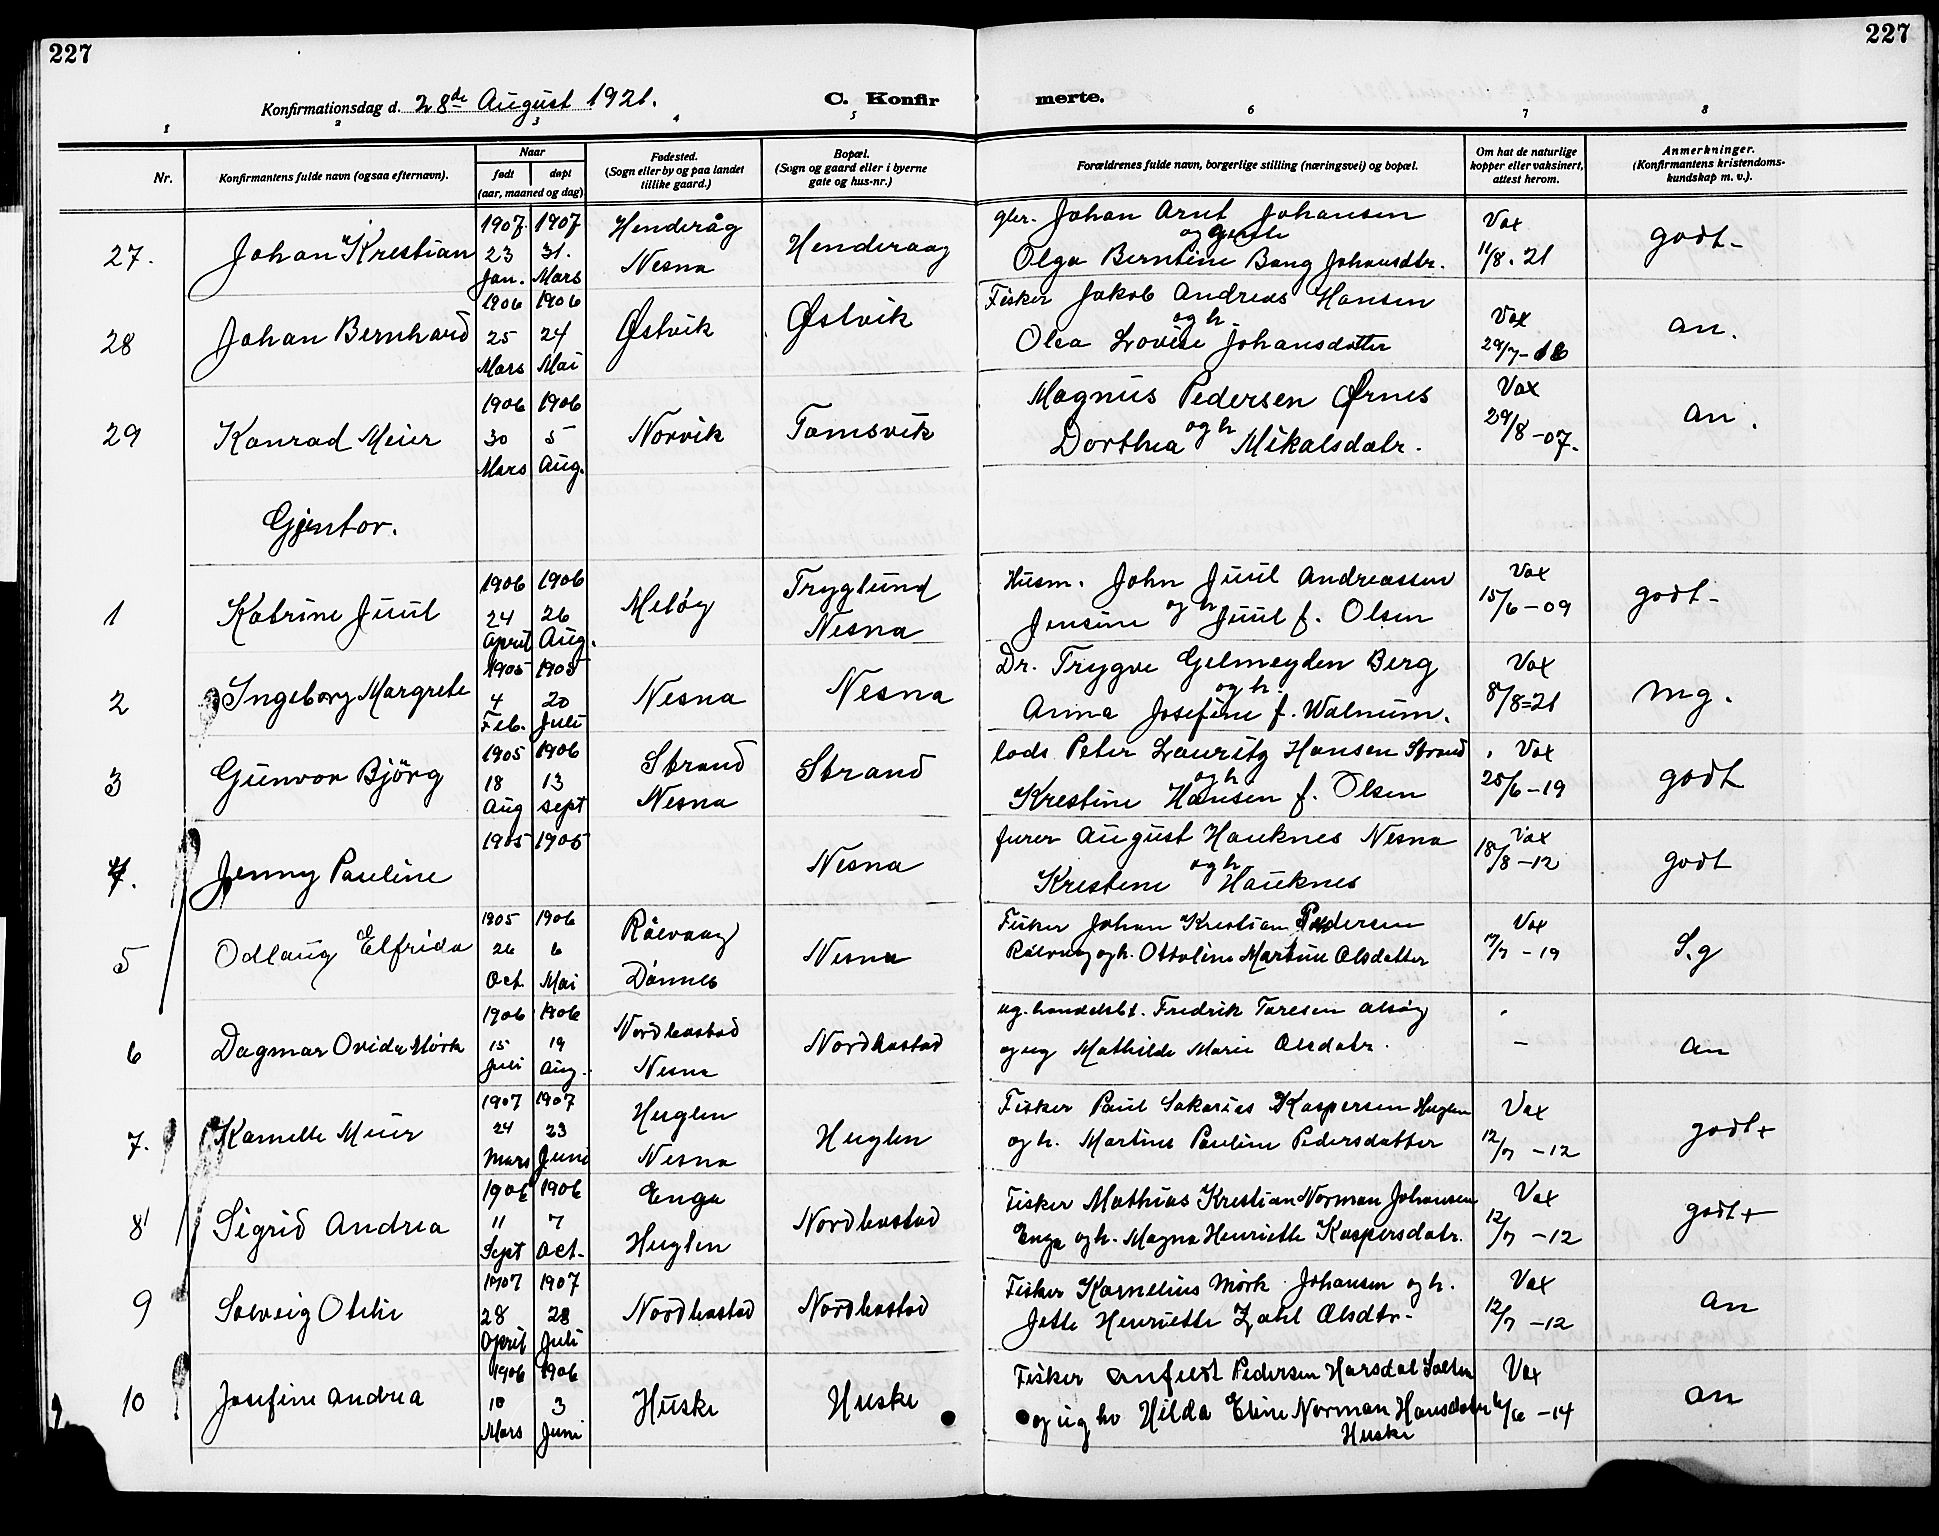 227
227
Konfirmationsdag d. 28de August 1921.
C. Konfir
merte.
1 2 3 4 5 6 7 8
Nr.
Konfirmantens fulde navn (ogsaa efternavn).
Naar
født
døpt
(aar, maaned og dag)
Fødested.
(Sogn eller by og paa landet
tillike gaard.)
Bopæl.
(Sogn og gaard eller i byerne
gate og hus-nr.)
Forældrenes fulde navn, borgerlige stilling (næringsvei) og bopæl.
Om hat de naturlige
kopper eller vaksinert,
attest herom.
Anmerkninger.
(Konfirmantens kristendoms-
kundskap m. v.).
27.
Johan Krestian
1907. 1907
23 31.
Jan. Mars
Henderåg
Nesna
Henderaag
gbr. Johan Arnt Johansen
og
Olga Berntine Bang Johansdtr.
Vax
11/8. 21
godt-
28
Johan Bernhard
1906 1906
25 24
Mars Mai
Østvik
Østvik
Fisker Jakob Andreas Hansen
og h.
Olea Lovise Johansdatter
Vax
29/7-16
an.
29
Konrad Meier
1906 1906
30 5
Mars Aug.
Norvik
Tomsvik
Magnus Pedersen Ørnes
og h
Dorthea Mikalsdatr.
Vax
29/8-07.
an.
Gjentor.
1
Katrine Juul
1906 1906
24 26
April Aug.
Meløy
Tryglund
Nesna
Husm. John Juul Andreassen
og h
Jensine Juul f. Olsen
Vax
15/6-09
godt-
2
Ingeborg Margrete
1905 1905
4 20
Feb. Juli
Nesna
Nesna
Dr. Trygve Gelmeyden Berg
og h.
Anna Josefine f. Walnum.
Vax
8/8=21
mg.
3
Gunvor Bjørg
1905 1906
18 13
Aug sept
Strand
Nesna
Strand
lods Peter Lauritz Hansen Strand
og h
Krestine Hansen f. Olsen
Vax
25/6-19
godt
4.
Jenny Pauline
1905 1905
Nesna
furer August Hauknes Nesna
og h
Krestene Hauknes
Vax
18/8-12
godt
5
Odlaug Elfrida
1905 1906
26 6
Oct. Mai
Rølvaag
Dønnes
Nesna
Fisker Johan Krestian Pedersen
Rølvaag og h. Ottoline Martine Olsdatter
Vax
17/7-19
S.g
6
Dagmar Ovida Mørk
1906 1906
15 19
Juli Aug.
Nordkostad
Nesna
Nordkostad
ug. handelsbt. Fredrik Toresen alsøy
og ug Mathilde Marie Olsdatr.
-
an
7.
Kamelle Meier
1907 1907
24 23
Mars Juni
Huglen
Nesna
Huglen
Fisker Paul Sakarias Kaspersen Huglen
og h. Martine Pauline Pedersdatter
Vax
12/7-12
godt+
8
Sigrid Andrea
1906 1906
11 7
Sept Oct.
Enga
Huglen
Nordkostad
Fisker Mathias Krestian Norman Johansen
Enga og h. Magna Henriette Kaspersdatr.
Vax
12/7-12
godt+
9
Solveig Otelie
1907 1907
28 28
April Juli
Nordkostad
Nordkostad
Fisker Karnelius Mørk Johansen og h.
Jette Henriette Zahl Olsdtr.
Vax
12/7-12
an
10
Josefine Andrea
1906 1906
10 3
Mars Juni
Huske
Huske
Fisker Anfeldt Pedersen Harsdal Salten
og ug hv Hilda Eline Norman Hansdatr
Huske
Vax
4/6-14
an